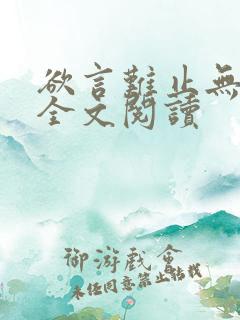 欲言難止無
全文閱讀
御游戲會
未经同意禁止转载